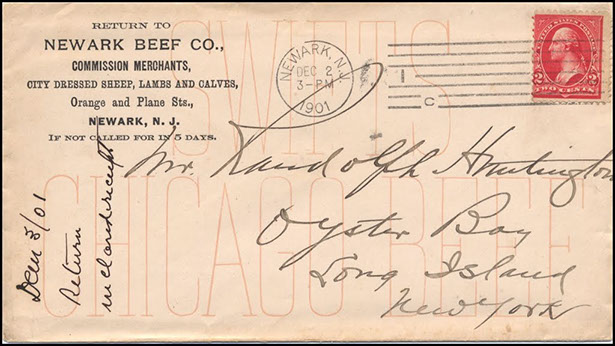 RETURN TO
NEWARK BEEF CO.,
COMMISSION MERCHANTS,
CITY DRESSED SHEEP, LAMBS AND CALVES,
Orange and Plane Sts.,
NEWARK, N. J.
IF NOT CALLED FOR IN 5 DAYS.
NEWARK, N.J.
DEC 2
3-PM
1901
1
C
2 2
TWO CENTS
SWIFTS
CHICAGO BEEF
Mr. Randolph Huntington
Oyster Bay
Long Island
New York
Dec 3/01
Return